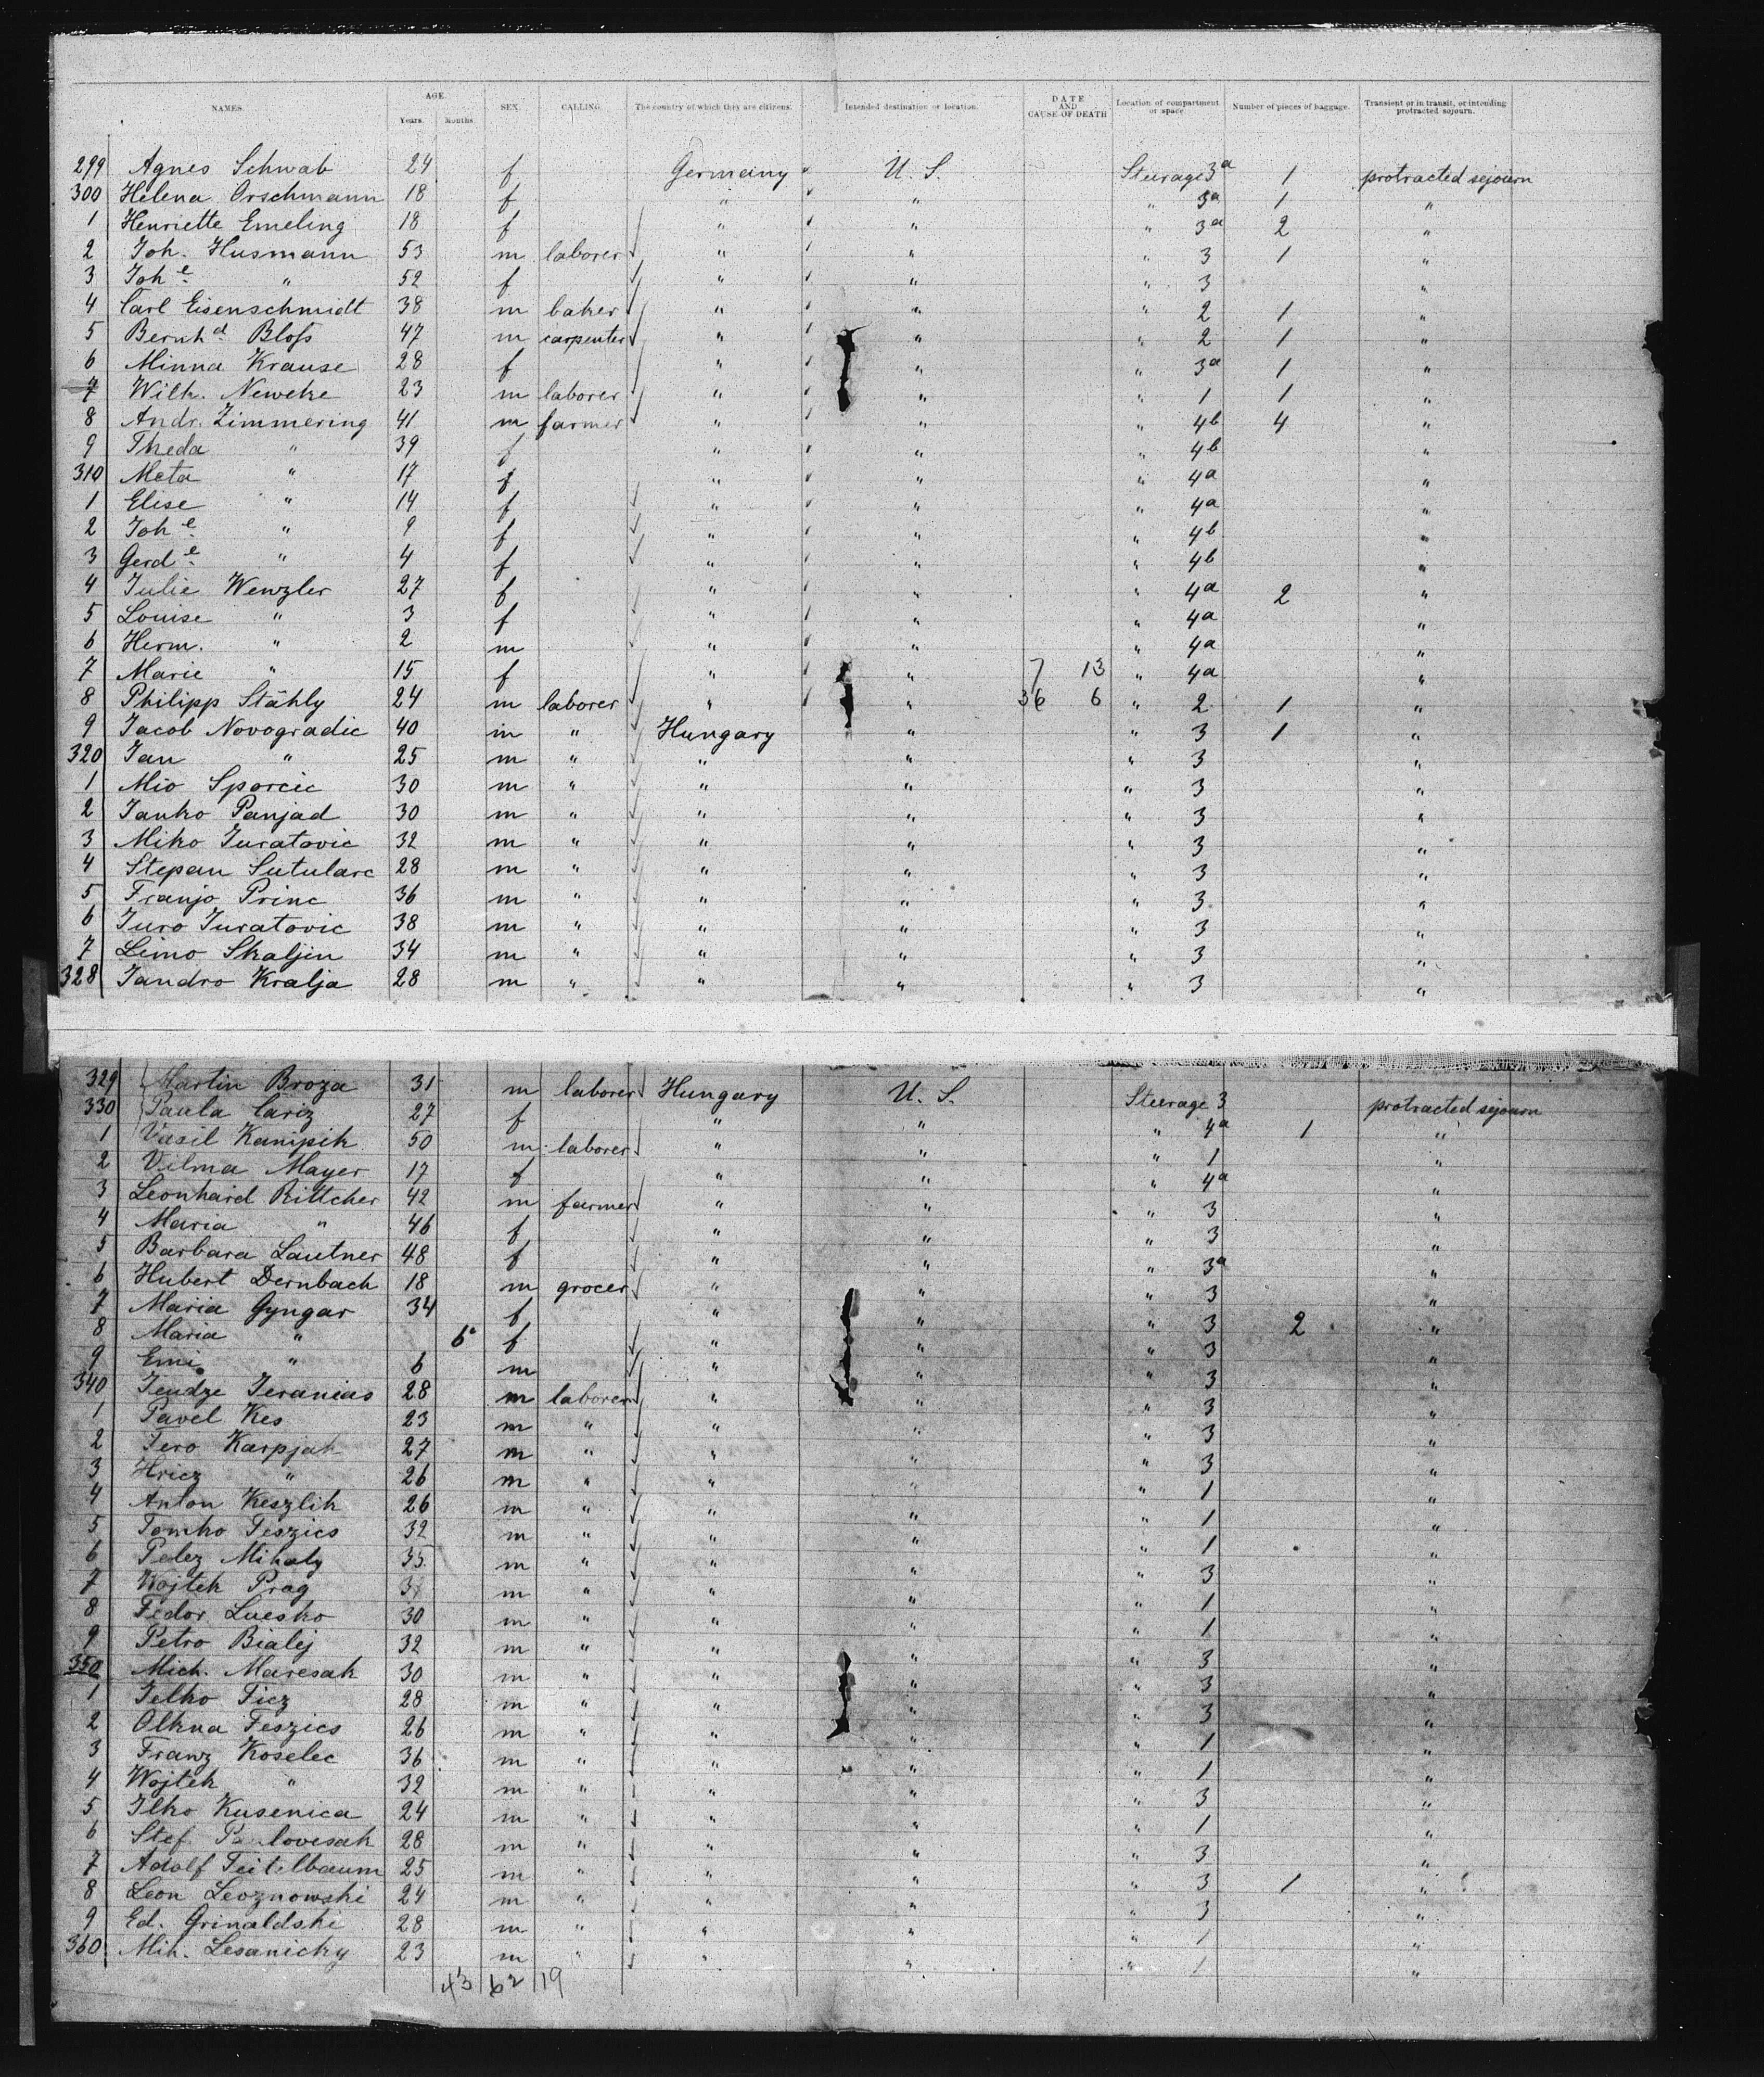 NAMES. AGE. Years. Months. SEX. CALLING. The country of which they are citizens. Intended destination or location. DATE AND CAUSE OF DEATH Location of compartment or space. Number of pieces of baggage. Transient or in transit, or intending protracted sojourn.
299 Agnes Schwab 24 f Germany U. S. Steerage 3a 1 protracted sejourn
300 Helena Orschmann 18 f " " " 3a 1 "
1 Henriette Emeling 18 f " " " 3a 2 "
2 Joh. Husmann 53 m laborer " " " 3 1 "
3 Johe " 52 f " " " 3 "
4 Carl Eisenschmidt 38 m baker " " " 2 1 "
5 Bernhd Bloſs 47 m carpenter " " " 2 1 "
6 Minna Krause 28 f " " " 3a 1 "
7 Wilh. Neweke 23 m laborer " " " 1 1 "
8 Andr. Zimmering 41 m farmer " " " 4b 4 "
9 Theda " 39 f " " " 4b "
310 Meta " 17 f " " " 4a "
1 Elise " 14 f " " " 4a "
2 Johe " 9 f " " " 4b "
3 Gerde " 4 f " " " 4b "
4 Julie Wenzler 27 f " " " 4a 2 "
5 Louise " 3 f " " " 4a "
6 Herm. " 2 m " " " 4a "
7 Marie " 15 f " " 7 13 " 4a "
8 Philipp Stähly 24 m laborer " " 36 6 " 2 1 "
9 Jacob Novogradic 40 m " Hungary " " 3 1 "
320 Jan " 25 m " " " " 3 "
1 Mio Sporcic 30 m " " " " 3 "
2 Janko Panjad 30 m " " " " 3 "
3 Miko Juratovic 32 m " " " " 3 "
4 Stepan Sutularc 28 m " " " " 3 "
5 Franjo Princ 36 m " " " " 3 "
6 Juro Juratovic 38 m " " " " 3 "
7 Simo Skaljin 34 m " " " " 3 "
328 Jandro Kralja 28 m " " " " 3 "
329 Martin Broza 31 m laborer Hungary U. S. Steerage 3 protracted sejourn
330 Paula Cariz 27 f " " " 4a 1 "
1 Vasil Kanipik 50 m laborer " " " 1 "
2 Vilma Mayer 17 f " " " 4a "
3 Leonhard Rittcher 42 m farmer " " " 3 "
4 Maria " 46 f " " " 3 "
5 Barbara Lautner 48 f " " " 3a "
6 Hubert Dernbach 18 m grocer " " " 3 "
7 Maria Gyngar 34 f " " " 3 2 "
8 Maria " 6 f " " " 3 "
9 Emi " 6 m " " " 3 "
340 Jendze Jeranias 28 m laborer " " " 3 "
1 Pavel Kes 23 m " " " " 3 "
2 Jero Karpjak 27 m " " " " 3 "
3 Hricz " 26 m " " " " 1 "
4 Anton Keszlik 26 m " " " " 1 "
5 Tomko Feszics 32 m " " " " 1 "
6 Pelez Mihaly 35 m " " " " 3 "
7 Wojtek Prag m " " " " 1 "
8 Fedor Luesko 30 m " " " " 1 "
9 Petro Bialej 32 m " " " " 3 "
350 Mich. Maresak 30 m " " " " 3 "
1 Jelko Ficz 28 m " " " " 3 "
2 Olkna Feszics 26 m " " " " 1 "
3 Franz Koselec 36 m " " " " 1 "
4 Wojtek " 32 m " " " " 3 "
5 Ilko Kusenica 24 m " " " " 1 "
6 Stef. 28 m " " " " 3 "
7 Adolf Teitelbaum 25 m " " " " 3 1 "
8 Leon Leoznowski 24 m " " " " 3 "
9 Ed. Grinaldski 28 m " " " " 1 "
360 Mih. Lesanicky 23 m " " " " 1 "
43 62 19